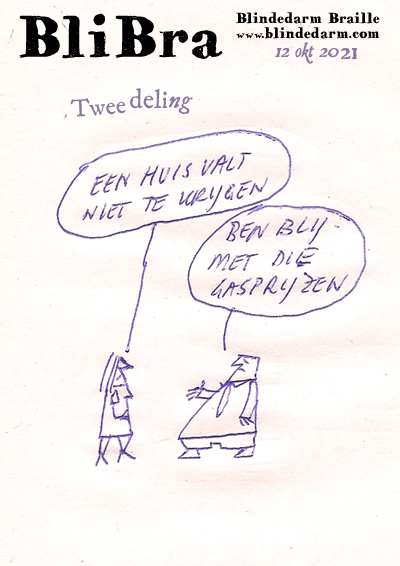 BliBra
Blindedarm Braille
www.blindedarm.com
12 okt 2021
Tweedeling
EEN HUIS VALT
NIET TE KRIJGEN
BEN BLIJ
MET DIE
GASPRIJZEN